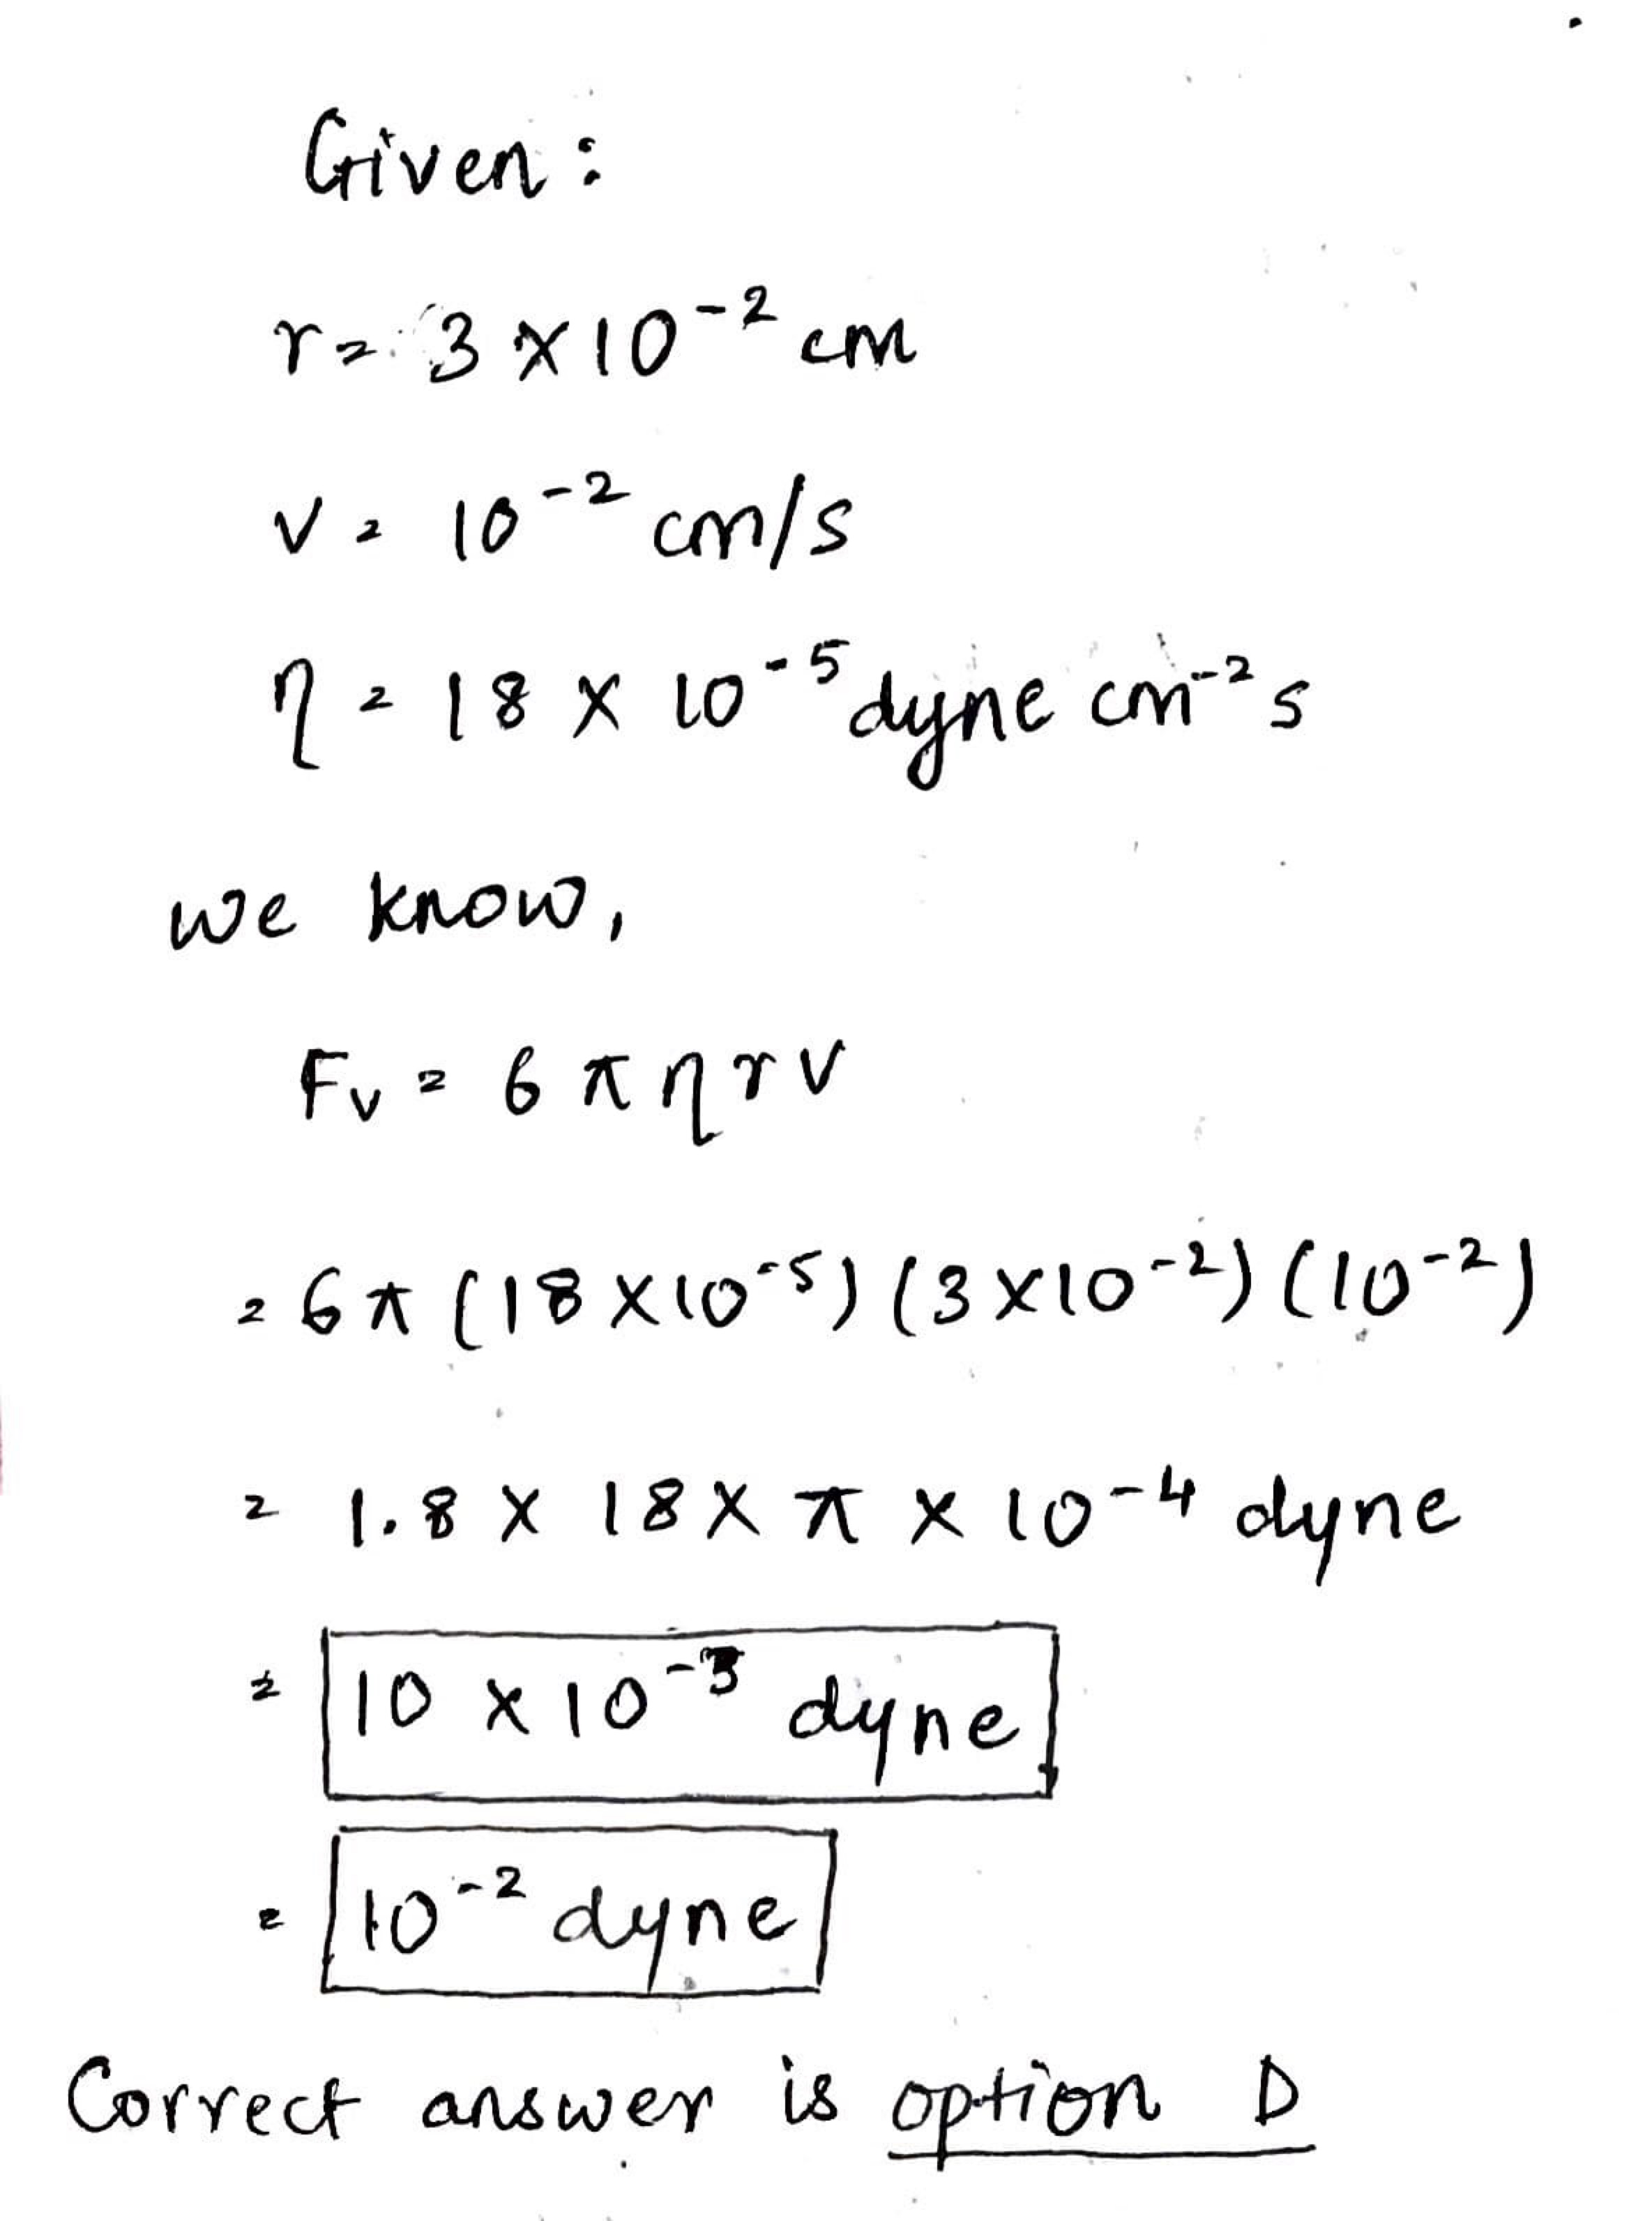 Given :
r = 3 × 10⁻² cm
v = 10⁻² cm/s
η = 18 × 10⁻⁵ dyne cm⁻² s
we know,
Fᵥ = 6 π η r v
= 6π (18 × 10⁻⁵) (3 × 10⁻²) (10⁻²)
= 1.8 × 18 × π × 10⁻⁴ dyne
= 10 × 10⁻³ dyne
= 10⁻² dyne
Correct answer is option D